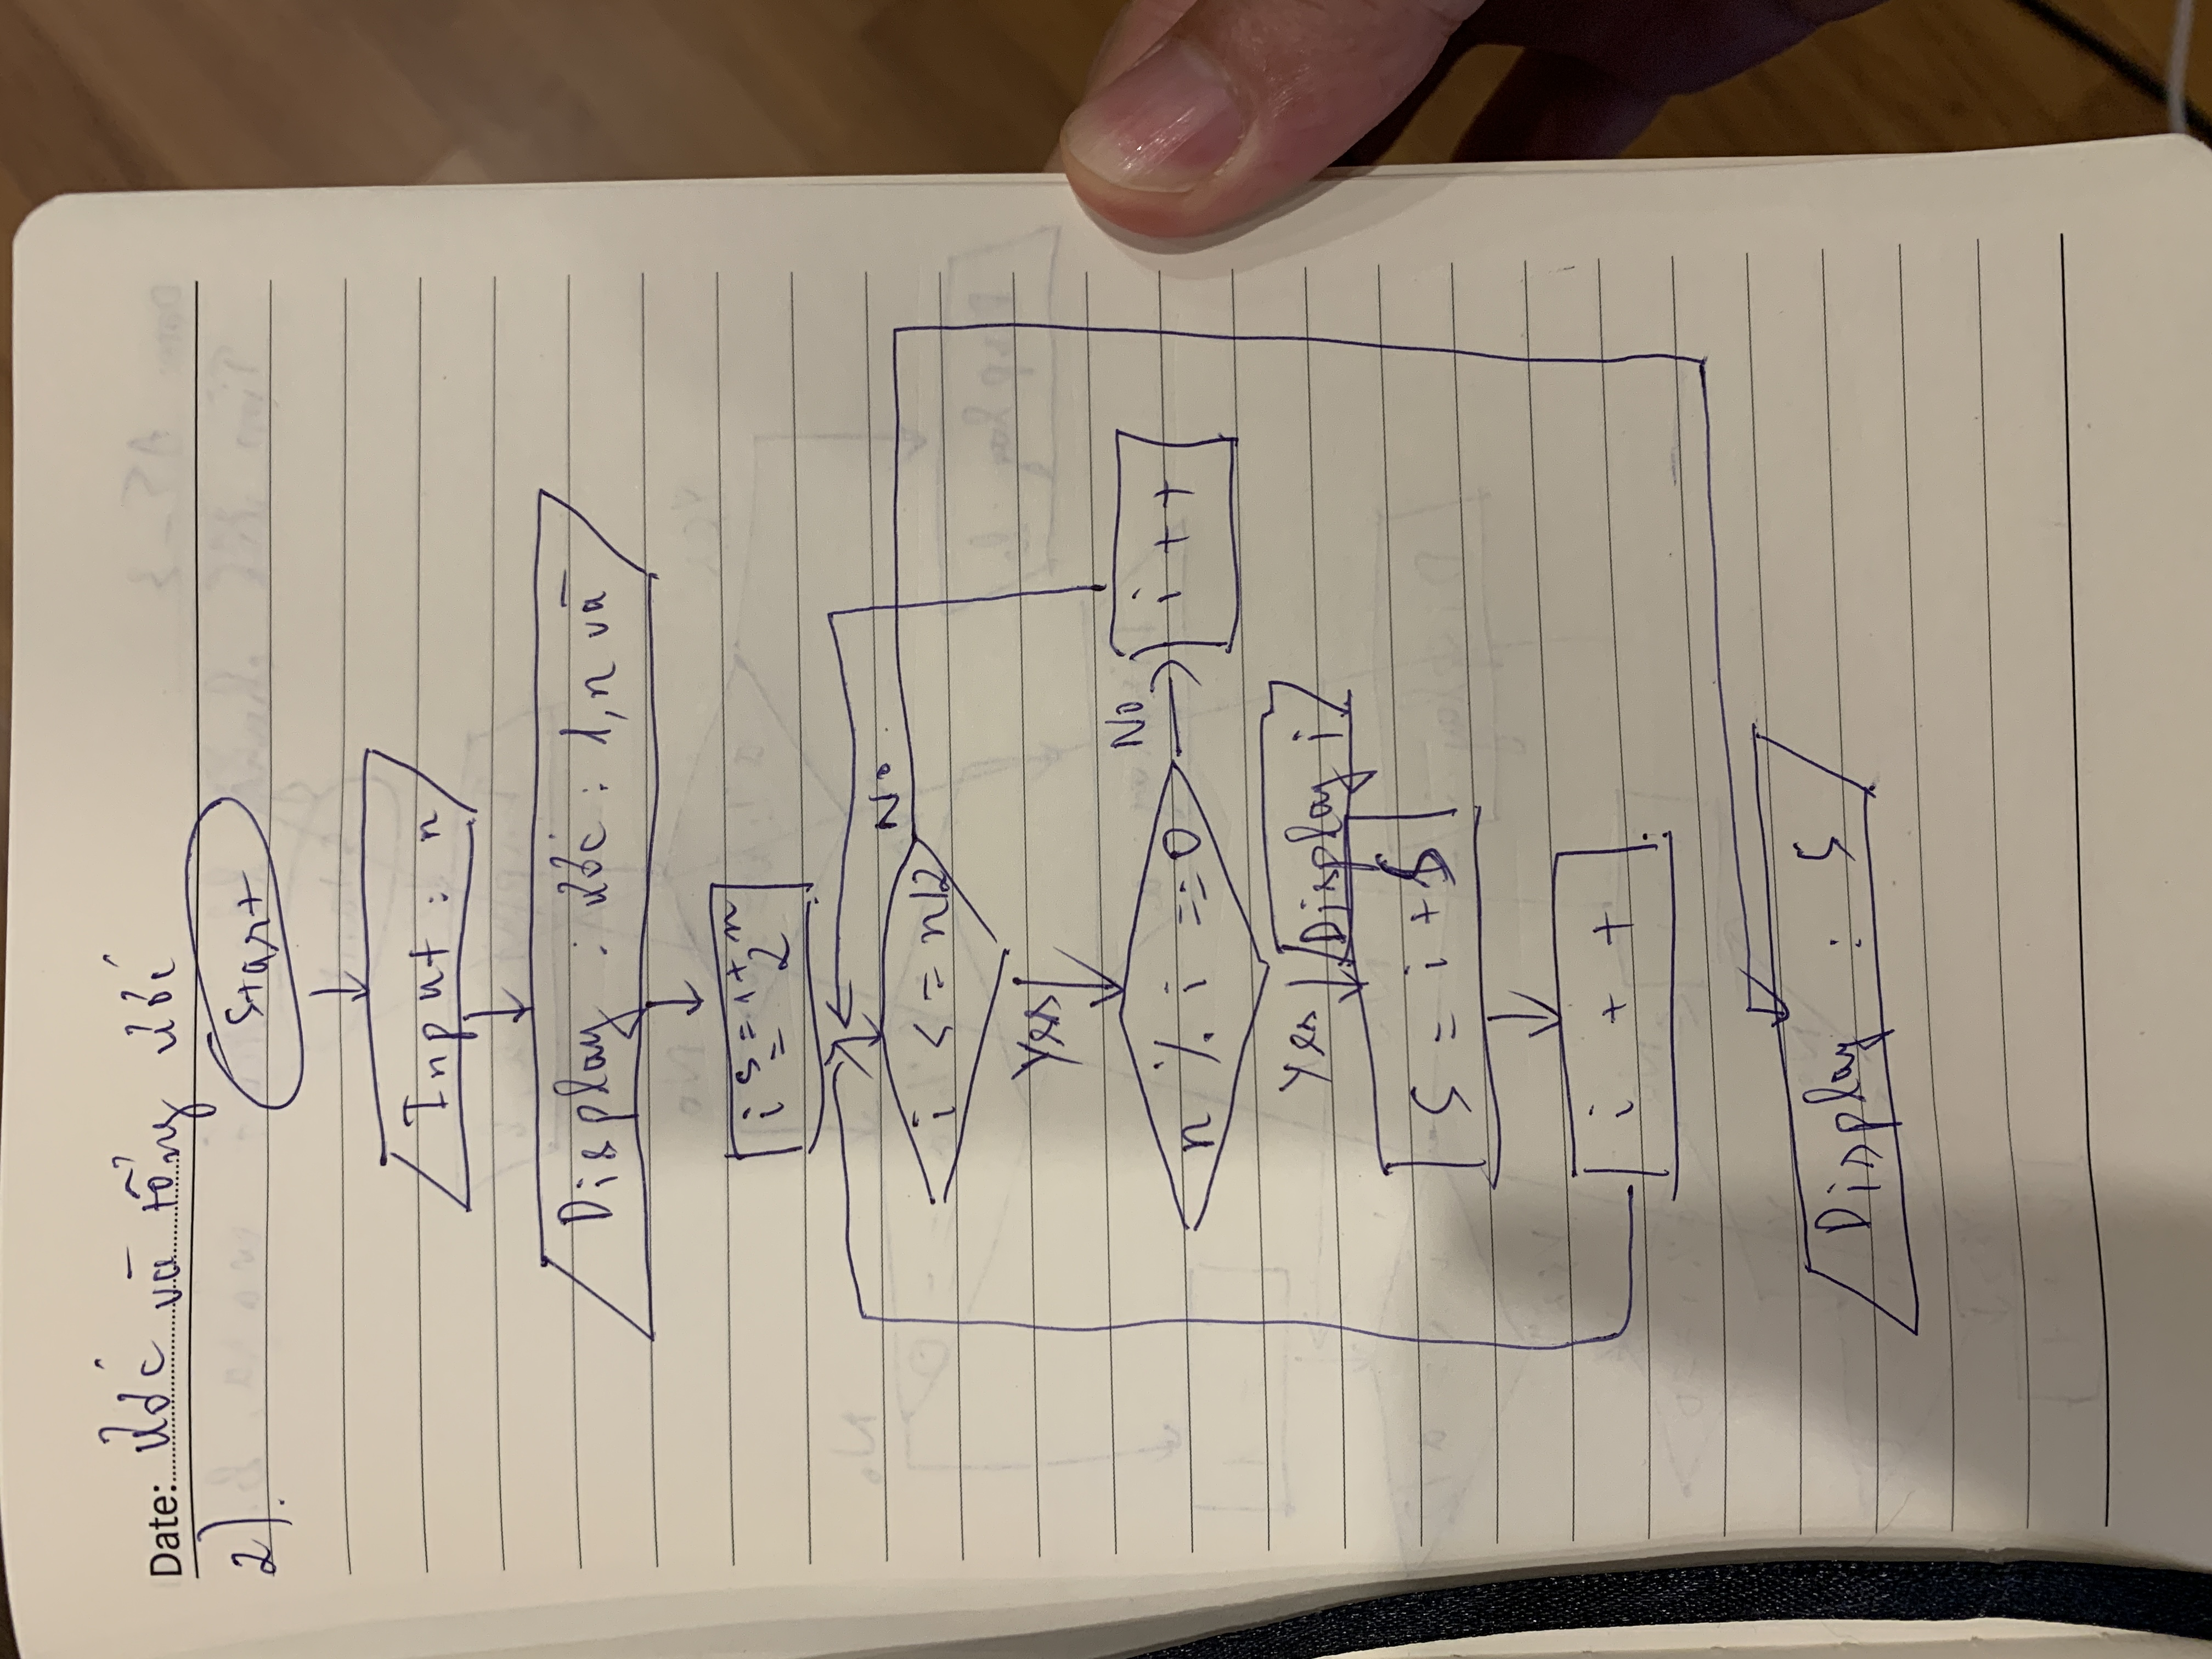 Date: Ước và tổng ước
2).
Start
Input : n
Display : ước : 1, n và
S = 1 + n
i = 2
i <= n/2
No
Yes
n % i == 0
No
i ++
Yes
Display i
S = i + S
i ++
Display : S